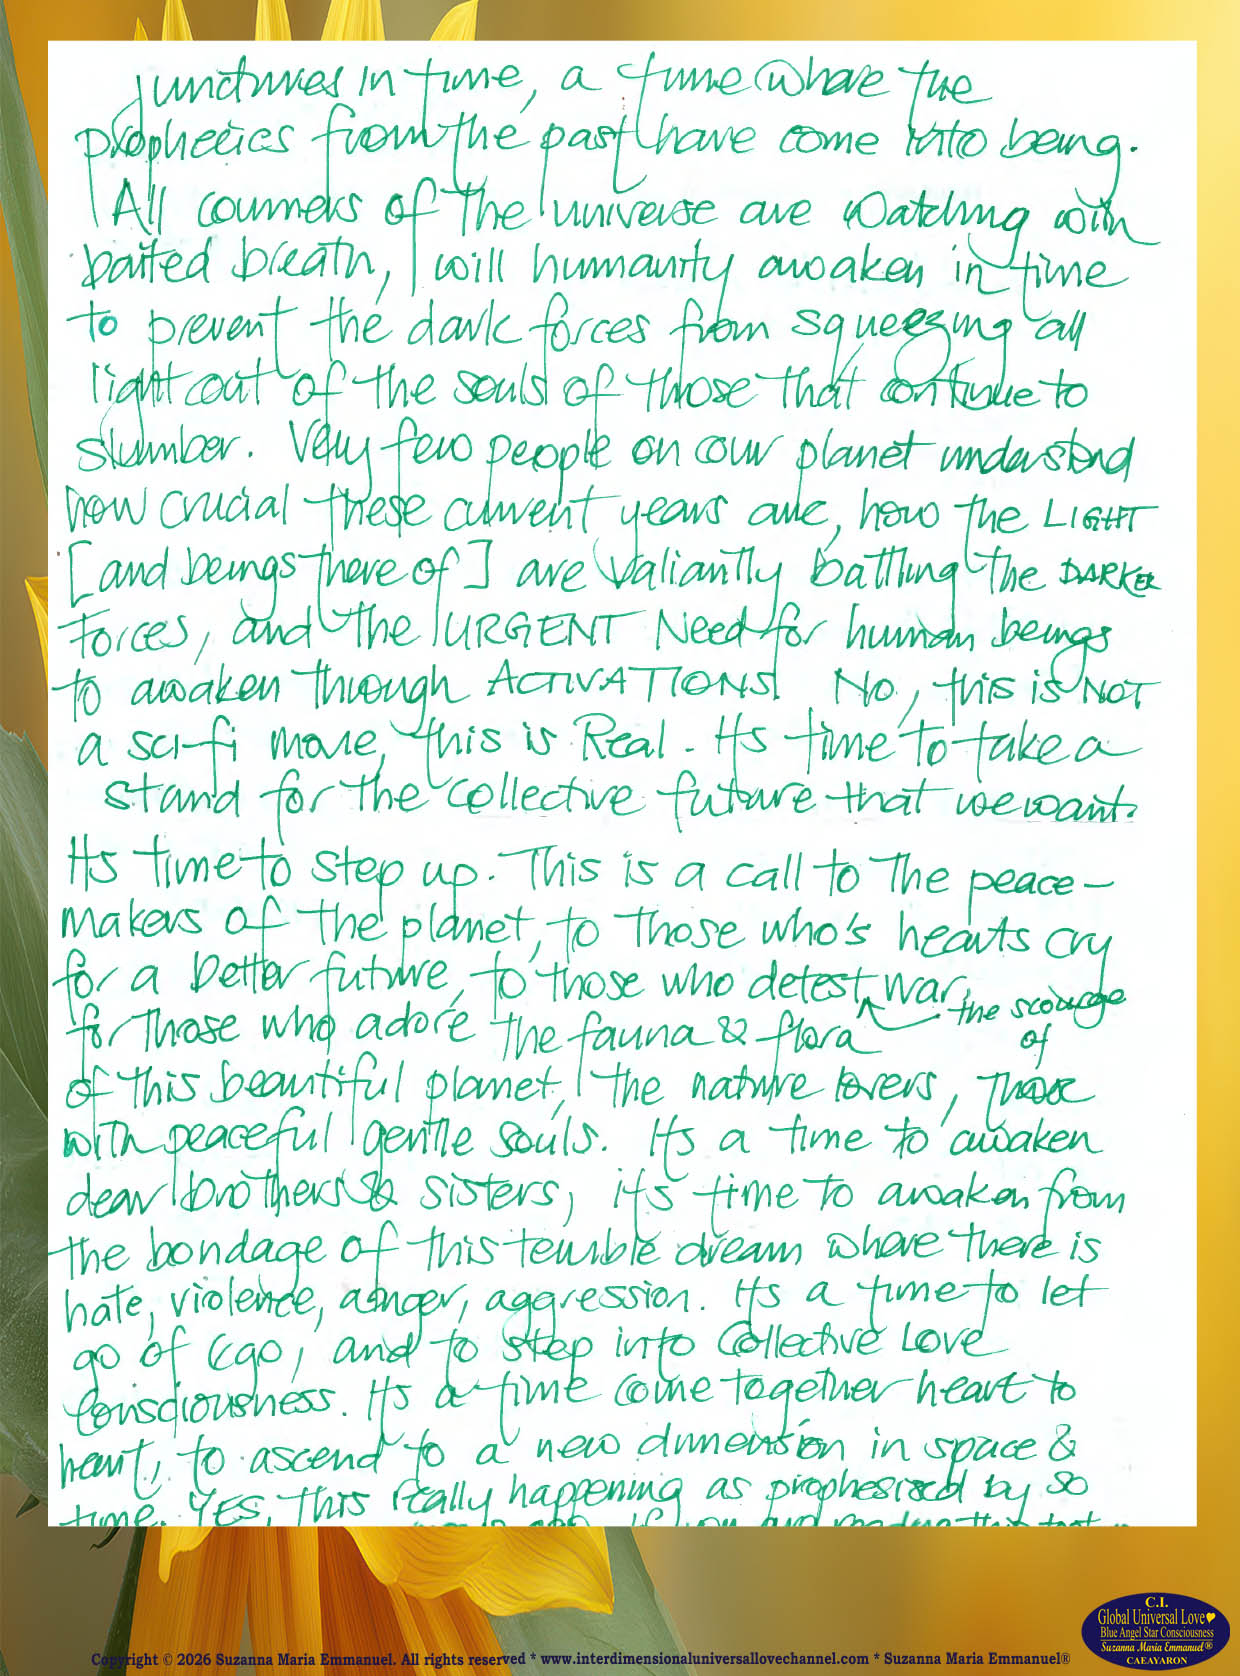 junctures in time, a time where the
prophecies from the past have come into being.
All corners of the universe are watching with
baited breath, will humanity awaken in time
to prevent the dark forces from squeezing all
light out of the souls of those that continue to
slumber. Very few people on our planet understand
how crucial these current years are, how the LIGHT
[and beings there of] are valiantly battling the DARKER
Forces, and the URGENT Need for human beings
to awaken through ACTIVATIONS! No, this is NOT
a sci-fi movie, this is Real. Its time to take a
stand for the collective future that we want.
Its time to step up. This is a call to the peace-
makers of the planet, to those who's hearts cry
for a better future, to those who detest war,
the scourge
of
for those who adore the fauna & flora
of this beautiful planet, the nature lovers, those
with peaceful gentle souls. Its a time to awaken
dear brothers & sisters, it's time to awaken from
the bondage of this terrible dream where there is
hate, violence, anger, aggression. Its a time to let
go of Ego, and to step into Collective Love
Consciousness. Its a time come together heart to
heart, to ascend to a new dimension in space &
time. YES, this really happening as prophesized by so
if you are reading this text
Copyright © 2026 Suzanna Maria Emmanuel. All rights reserved * www.interdimensionaluniversallovechannel.com * Suzanna Maria Emmanuel®
C.I.
Global Universal Love
Blue Angel Star Consciousness
Suzanna Maria Emmanuel®
CAEAYARON